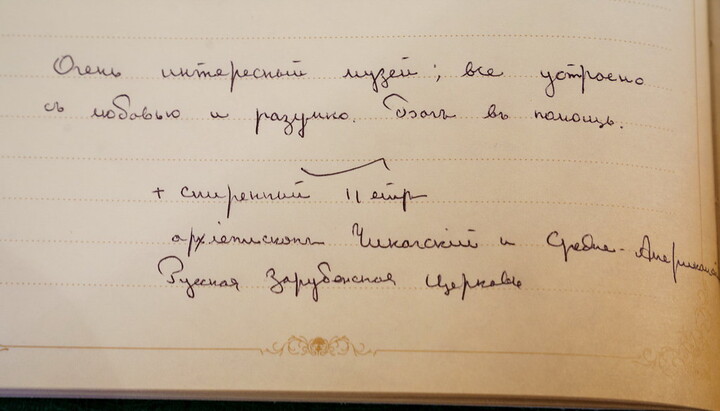 Очень интересный музей; все устроено
съ любовью и разумно. Богъ въ помощь.
+ смиренный Петр
архіепископъ Чикагский и Средне-Американский
Русская Зарубежная Церковь